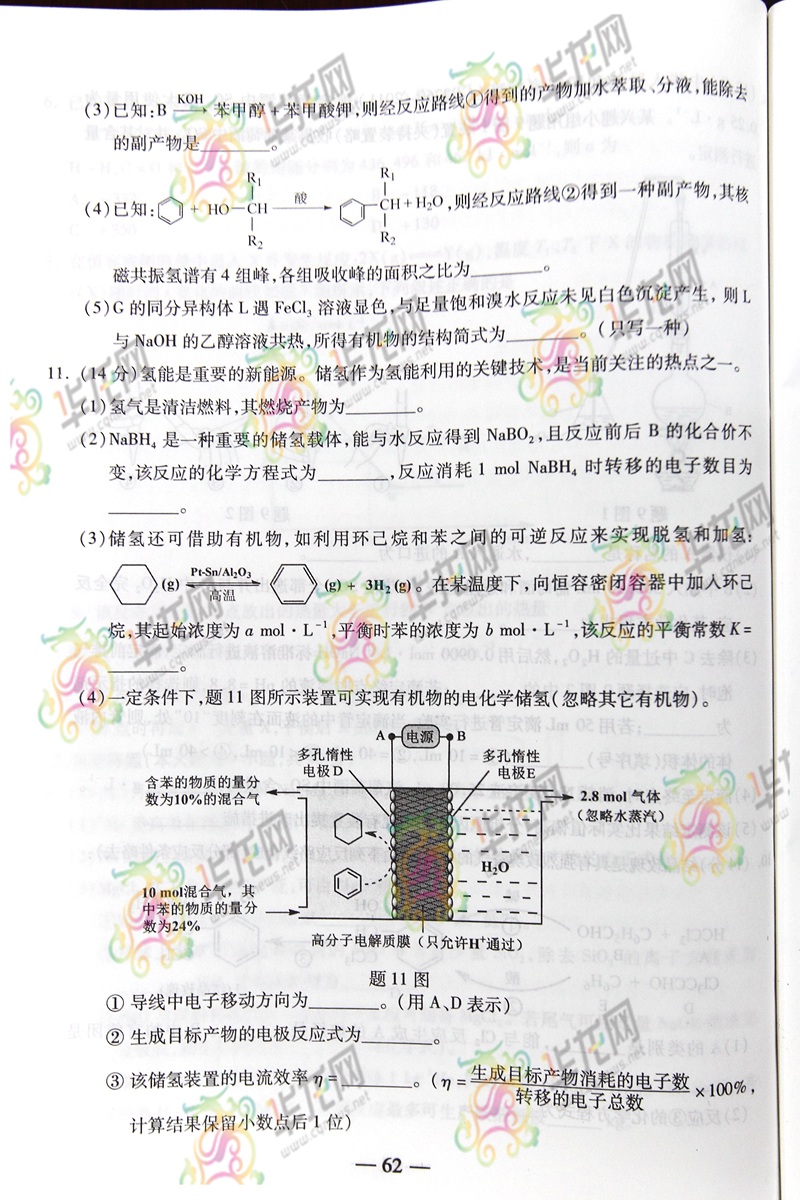 (3)已知:B KOH→ 苯甲醇+苯甲酸钾,则经反应路线①得到的产物加水萃取、分液,能除去
的副产物是________。
(4)已知: + HO—CH(R₁)(R₂) 酸→ —CH(R₁)(R₂) + H₂O,则经反应路线②得到一种副产物,其核
磁共振氢谱有4组峰,各组吸收峰的面积之比为________。
(5)G的同分异构体L遇FeCl₃溶液显色,与足量饱和溴水反应未见白色沉淀产生, 则L
与NaOH的乙醇溶液共热,所得有机物的结构简式为________。(只写一种)
11.(14分)氢能是重要的新能源。储氢作为氢能利用的关键技术,是当前关注的热点之一。
(1)氢气是清洁燃料,其燃烧产物为________。
(2)NaBH₄是一种重要的储氢载体,能与水反应得到NaBO₂,且反应前后B的化合价不
变,该反应的化学方程式为________,反应消耗1 mol NaBH₄时转移的电子数目为
________。
(3)储氢还可借助有机物,如利用环己烷和苯之间的可逆反应来实现脱氢和加氢:
(g) Pt-Sn/Al₂O₃ ⇌ 高温 (g) + 3H₂(g)。在某温度下,向恒容密闭容器中加入环己
烷,其起始浓度为a mol·L⁻¹,平衡时苯的浓度为b mol·L⁻¹,该反应的平衡常数K=
________。
(4)一定条件下,题11图所示装置可实现有机物的电化学储氢(忽略其它有机物)。
A 电源 B
多孔惰性
电极D
多孔惰性
电极E
含苯的物质的量分
数为10%的混合气
2.8 mol 气体
(忽略水蒸汽)
H₂O
10 mol混合气,其
中苯的物质的量分
数为24%
高分子电解质膜(只允许H⁺通过)
题11图
①导线中电子移动方向为________。(用A、D表示)
②生成目标产物的电极反应式为________。
③该储氢装置的电流效率η=________。(η=生成目标产物消耗的电子数/转移的电子总数×100%,
计算结果保留小数点后1位)
— 62 —
华龙网
www.cqnews.net